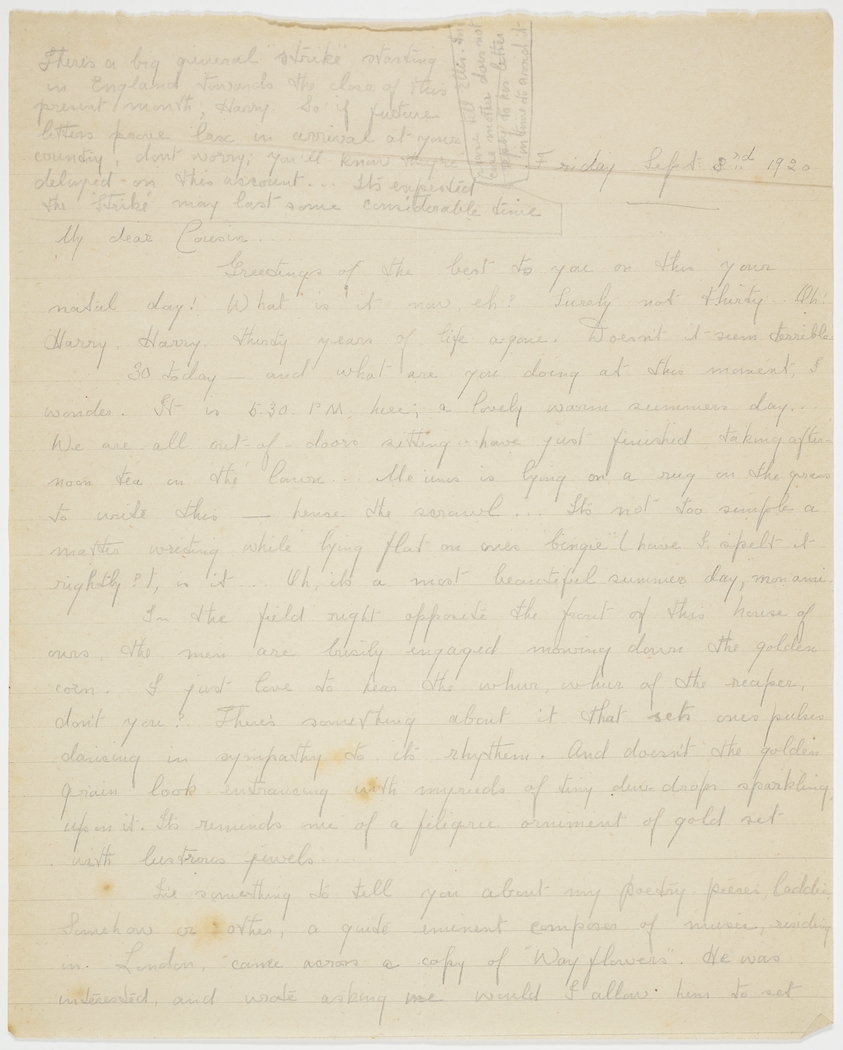 There's a big general "strike" starting
in England towards the close of this
present month, Harry. So if future
letters prove late in arrival at your
country, dont worry; you'll know they're
delayed on this account... Its expected
the 'Strike' may last some considerable time
mother does not
reply to his letter
in time to avoid it
Friday Sept 3rd 1920
My dear Cousin..
Greetings of the best to you on this your
natal day! What is it now, eh? Surely not thirty... Oh!
Harry. Harry. thirty years of life agone. Doesn't it seem terrible
30 today — and what are you doing at this moment, I
wonder. It is 5.30. P.M. here; a lovely warm summers day..
We are all out-of-doors sitting.. have just finished taking after-
noon tea on the lawn... Me is lying on a rug on the grass
to write this — hence the scrawl... Its not too simple a
matter writing while lying flat on ones "bingie" (have I spelt it
rightly?), is it.. Oh, its a most beautiful summer day, mon ami.
In the field right opposite the front of this house of
ours, the men are busily engaged mowing down the golden
corn. I just love to hear the whirr, whirr of the reaper,
don't you? There's something about it that sets ones pulses
dancing in sympathy to its rhythm. And doesn't the golden
grain look entrancing with myrieds of tiny dew-drops sparkling
upon it. Its reminds me of a filigree ornament of gold set
with lustrous jewels..
I've something to tell you about my poetry pieces, laddie,
Somehow or other, a quite eminent composer of music, residing
in London, came across a copy of "Wayflowers". He was
interested, and wrote asking me would I allow him to set